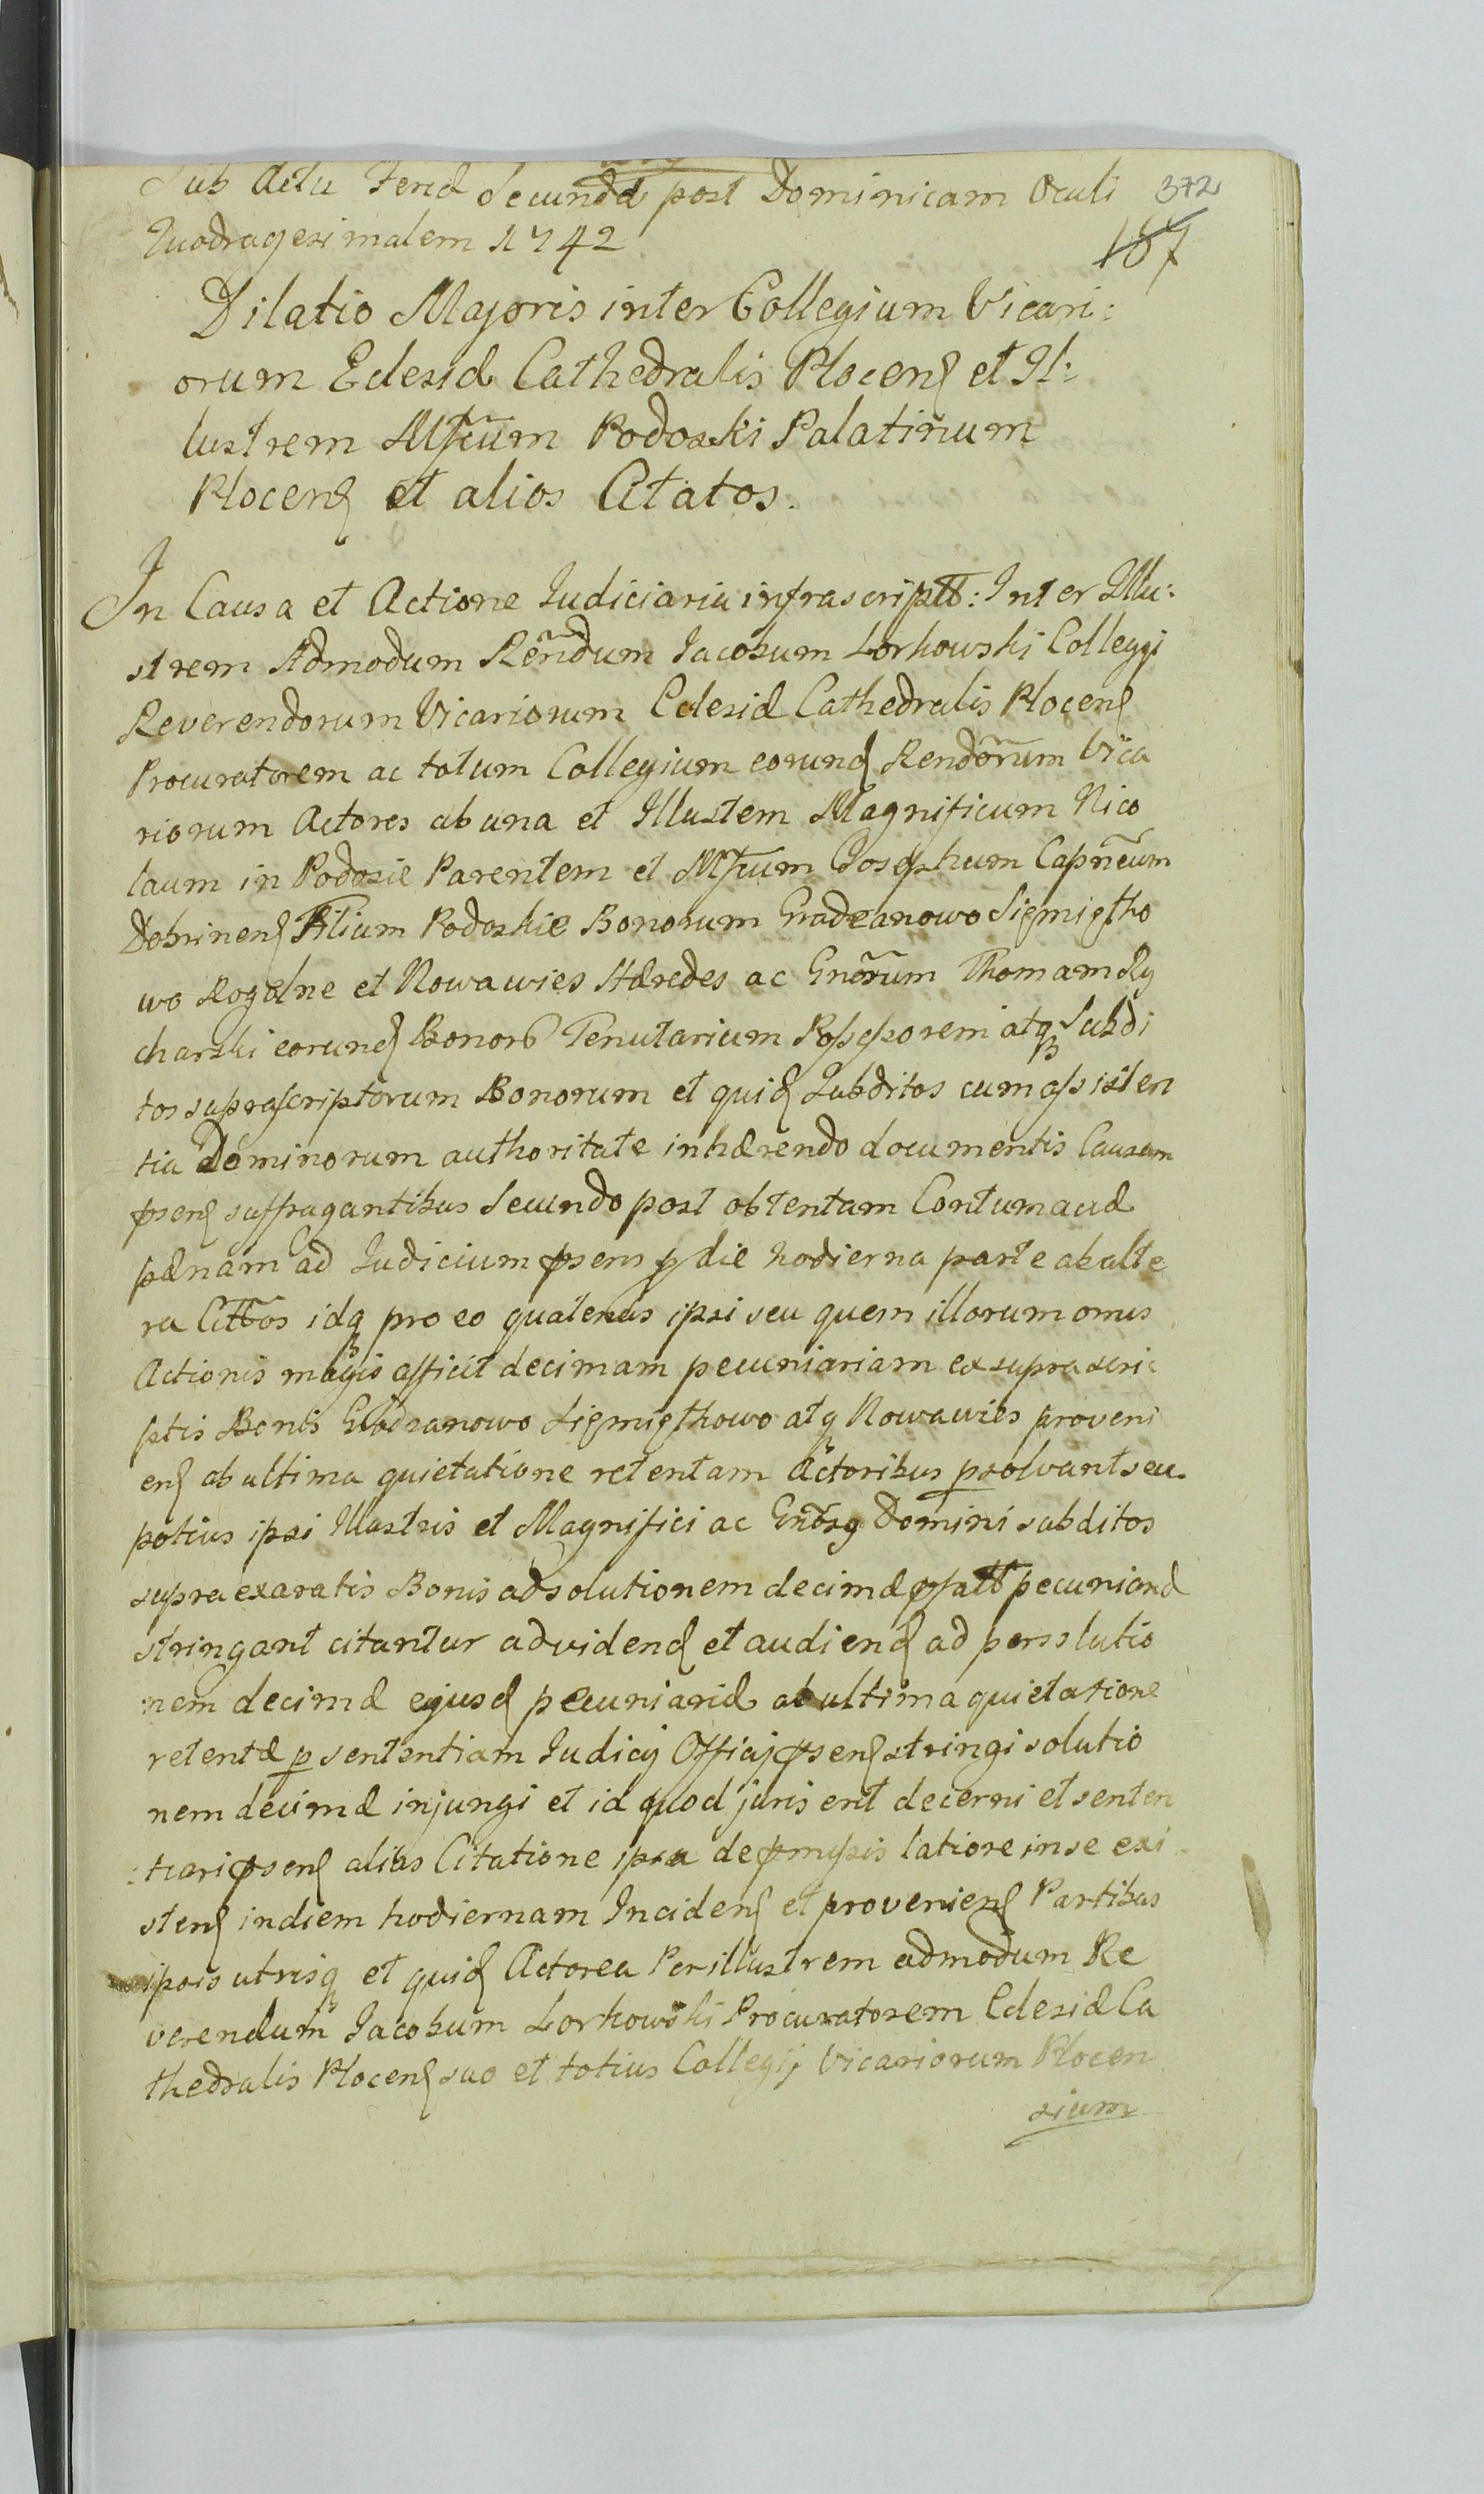 Sub Actu Feriæ Secundæ post Dominicam Oculi 372
Quadragesimalem 1742 187
Dilatio Majoris inter Collegium Vicari:
orum Eclesiæ Cathedralis Plocens et Il:
lustrem Mfcum Podoski Palatinum
Plocens et alios Citatos.
In Causa et Actione Judiciaria infrascriptt: Inter Illu:
strem Admodum Rendum Jacobum Lorkowski Collegij
Reverendorum Vicariorum Eclesiæ Cathedralis Plocens
Procuratorem ac totum Collegium eorund Rendorum Vica
riorum Actores ab una et Illustem Magnificum Nico
laum in Podosie Parentem et Mfcum Josephum Capneum
Dobrinens Filium Podoskie Bonorum Gradzanowo Siemiątko
wo Rogalne et Nowawies Hæredes ac Gnorum Thomam Ry
charski eorund Bonor Tenutarium Possessorem atq Subdi
tos suprascriptorum Bonorum et quid Subditos cum assisten
tia Dominorum authoritate inhærendo documentis Causam
psens suffragantibus Secundo post obtentam Contumaciæ
pænam ad Judicium psens p die hodierna parte ab alte
ra Cittos idq pro eo quatenus ipsi seu quem illorum onus
Actionis magis afficit decimam pecuniariam ex suprascri
ptis Bonis Gradzanowo Siemiątkowo atq Nowawies proveni
ens ab ultima quietatione retentam Actoribus psolvant seu
potius ipsi Illustris et Magnifici ac Domini subditos
supra exaratis Bonis ad solutionem decimæ pecuniariæ
stringant citantur ad vidend et audiend ad persolutio
nem decimæ ejusd pecuniariæ ab ultima quietatione
retentæ p sententiam Judicij Officij psens stringi solutio
nem decimæ injungi et id quod juris erit decerni et senten
tiari psens alias Citatione ipsa de pmissis latiore in se exi
stens in diem hodiernam Incidens et proveniens Partibus
ipsis utrisq et quid Actorea Perillustrem admodum Re
verendum Jacobum Lorkowski Procuratorem Eclesiæ Ca
thedralis Plocens suo et totius Collegij Vicariorum Plocen
sium